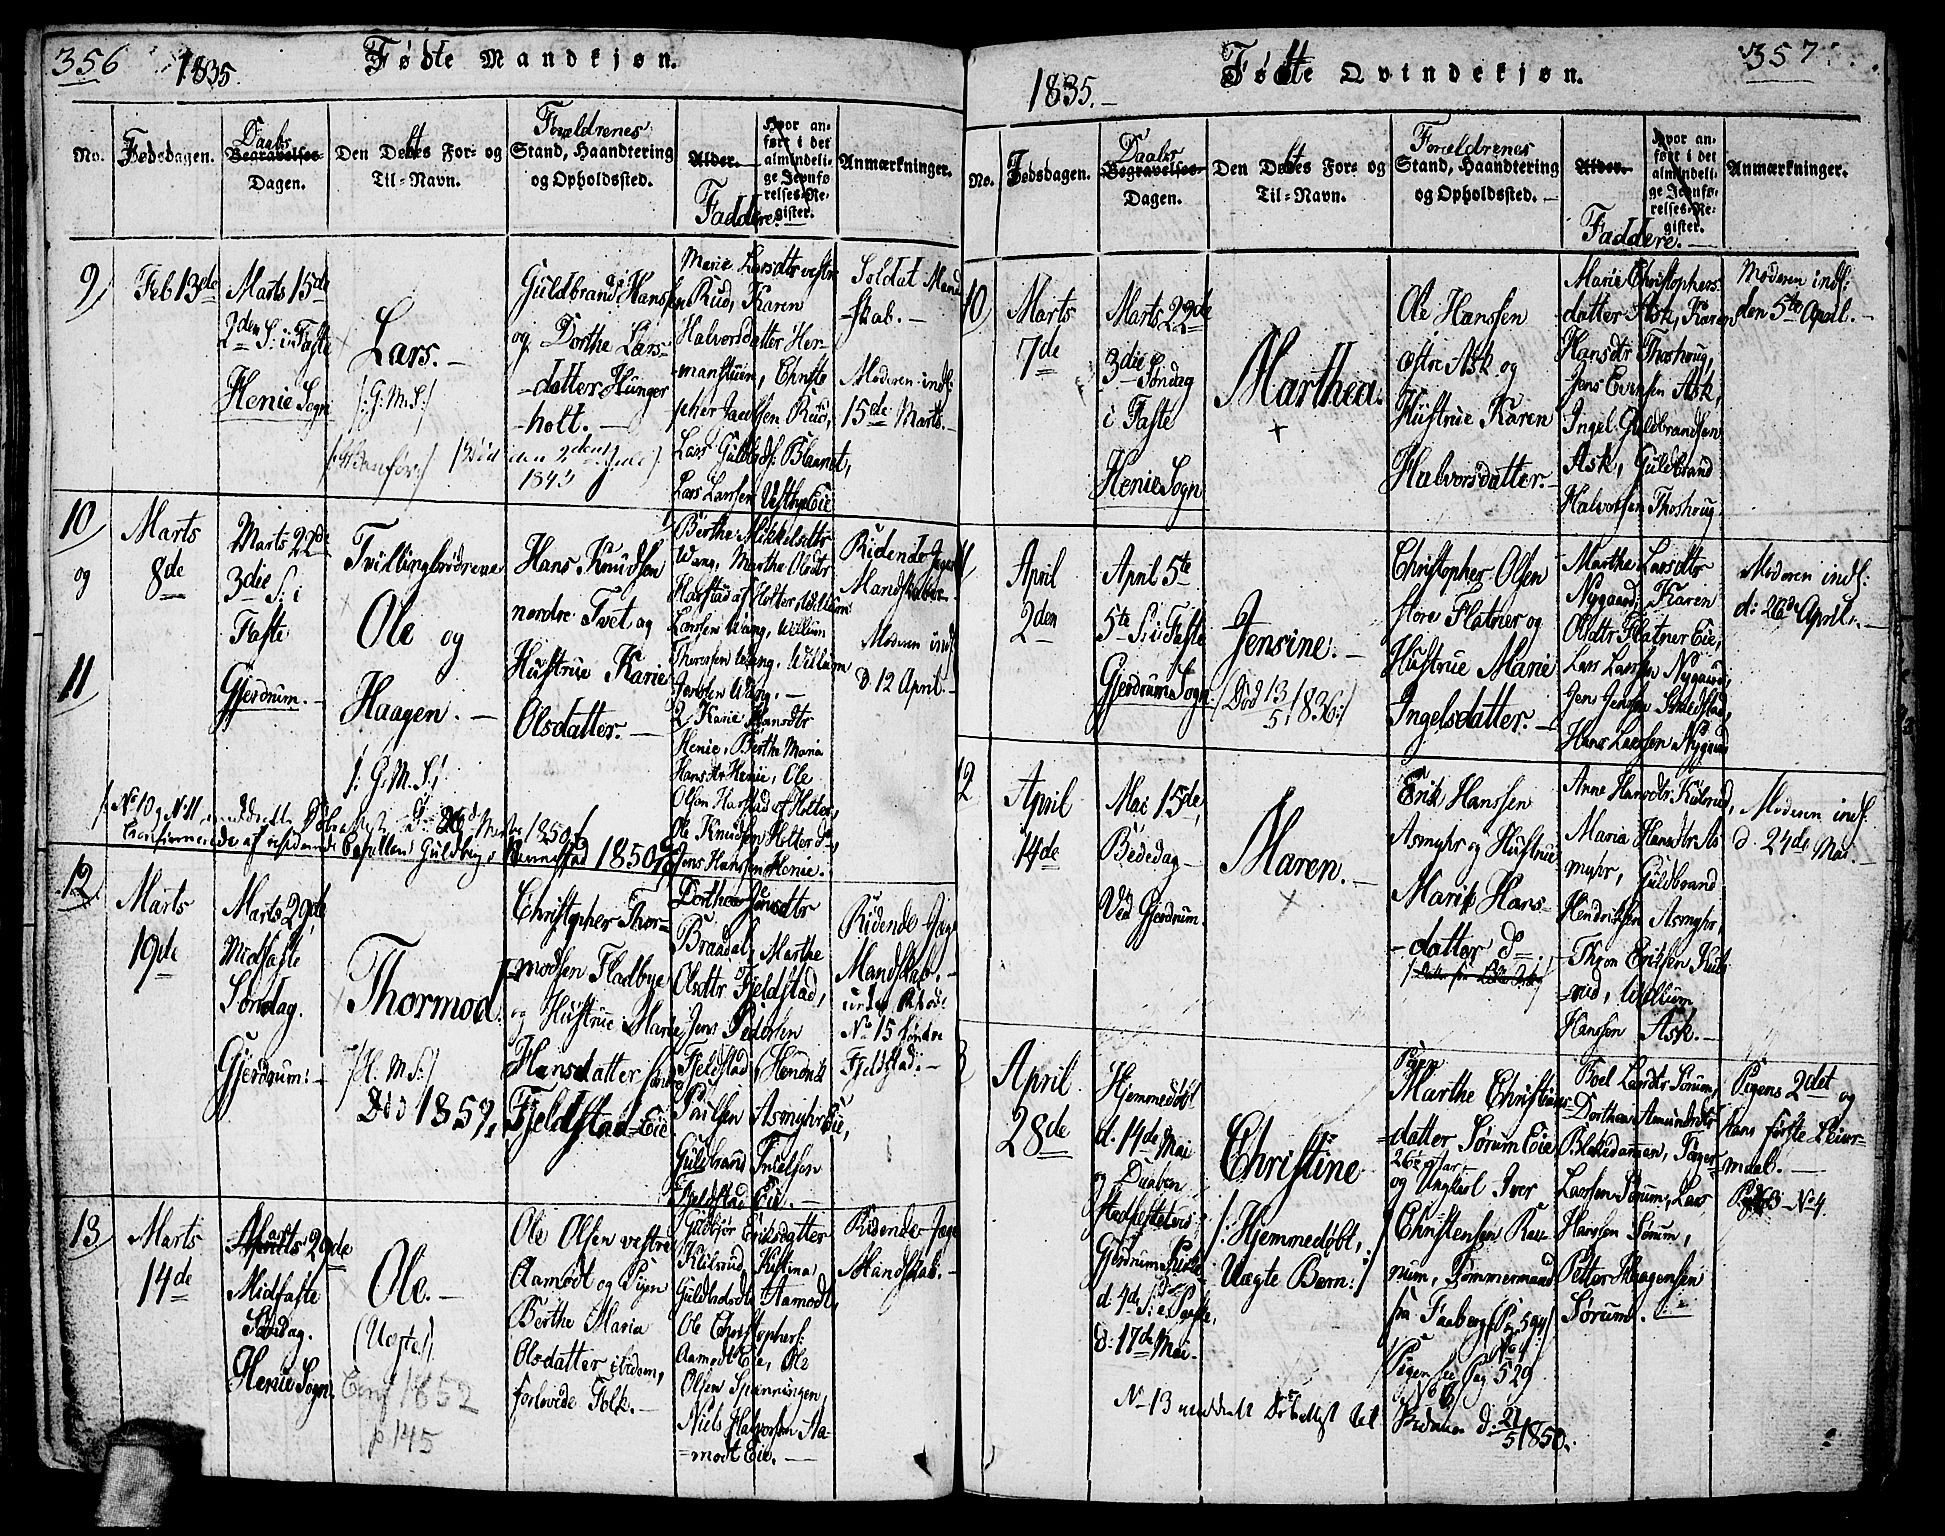 356
1835.
Fødte Mandkjøn.
No.
Fødsdagen.
Daabs
Begravelses-
Dagen.
Den Døbtes For- og
Til-Navn.
Forældrenes
Stand, Haandtering
og Opholdssted.
Alder.
Faddere.
Hvor an-
ført i det
almindeli-
ge Jevnfø-
relses-Re-
gister.
Anmærkninger.
9,
Feb 13de
Marts 15de
2den S: i Faste
Henie Sogn
Lars.
/: G. M. S:/
Guldbrand Hanssen
og Dorthe Lars-
-datter Hunger
-holt.
den 2den Juli
1843
Marie Larsdtr vestre
Rud, Karen
Halvorsdatter Her-
manstuen, Christo
pher Jacobsen Rud,
Lars Larssen
Soldat Mand
-skab.
Moderen indl:
15de Marts.
10
og
11
Marts
8de
Marts 22de
3die S: i
Faste
Gjerdrum.
Tvillingbrødrene
Ole og
Haagen.
/: G. M. S:/
Hans Knudsen
nordre Tvet og
Hustrue Karie
Olsdatter.
Berthe Mikkelsdtr
Wang, Marthe Olsdtr
Harstad af Holter, Willum
Larssen Wang, Willum
Wang, Willum
Wang.
2, Karie Hansdtr
Henie, Berthe Maria
Hansdtr Henie, Ole
Olsen Harstad af Holter,
Ole Knudsen Holter
Jens Hanssen Henie.
Ridende Jæger
Mandskaber
Moderen indl
d. 12 April.
No 10 og No 11
1850
1850
12
Marts
19de
Marts 29de
Midfaste
Søndag.
Gjerdrum.
Thormod.
/: H. M. S:/
Død 1859,
Christopher Thor-
modsen Fladbye
og Hustrue Marie
Hansdatter
Fjeldstad Eie
Dorthea Jensdtr
Braadal, Marthe
Olsdtr Fjeldstad,
Jens Pedersen
Fjeldstad, Hendrik
Paulsen Asmyhr Eie,
Guldbrand Truelsen
Fjeldstad Eie.
Ridende Jæg
Mandskab.
under
No 15 søndre
Fjeldstad.
13
Marts
14de
Marts 29de
Midfaste
Søndag.
Henie Sogn
Ole.
(Uægte/)
Conf 1852
p 145
Ole Olsen vestre
Aamodt og Pigen
Berthe Maria
Olsdatter ibidem,
forlovede Folk.
Guldbjør Eriksdatter
Kulsrud, Kistina
Guldbrdsdtr Aamodt,
Ole Christophers:
Aamodt Eie, Ole
Olsen Spanningen,
Niels Halvorsen Aa-
=modt Eie.
Ridende Jæge
Mandskab.
357
1835.
Fødte Qvindekjøn.
No.
Fødsdagen.
Daabs
Begravelses-
Dagen.
Den Døbtes For- og
Til-Navn.
Forældrenes
Stand, Haandtering
og Opholdssted.
Alder.
Faddere.
Hvor an-
ført i det
almindeli-
ge Jevnfø-
relses-Re-
gister.
Anmærkninger.
10
Marts
7de
Marts 22de
3die Søndag
i Faste
Henie Sogn
Marthea.
Ole Hanssen
østre Ask og
Hustrue Karen
Halvorsdatter.
Marie Christophers
datter Ask, Karen
Hansdtr Thoshoug,
Jens Evensen Ask,
Ingel Guldbrandsen
Ask, Guldbrand
Halvorsen Thoshoug
Moderen indl:
den 5te April.
11
April
2den
April 5te
5te S: i Faste
Gjerdrum Sogn
Jensine.
/Død 13/5 1836:/
Christopher Olsen
store Flatner og
Hustrue Marie
Ingelsdatter.
Marthe Larsdtr
Nygaard, Karen
Olsdtr Flatner Eie,
Lars Larssen Nygaard,
Jens Jenssen
Hans Larssen Nygaard
Moderen indl:
d: 26de April.
12
April
14de
Mai 15de,
Bededag
Ved Gjerdrum
Maren.
Erik Hanssen
Asmyhr og Hustrue
Marie Hans-
-datter do
Anne Hansdtr Kulsrud,
Maria Hansdtr As
myhr, Guldbrand
Hendriksen Asmyhr,
Thron Eriksen Kuls
rud, Willum
Hanssen Ask.
Moderen indl:
d. 24de Mai.
April
28de
Hjemmedøbt
d. 14de Mai
og Daaben
stadfestet
Gjerdrum Kirke
d. 4de S: e. Paaske,
d. 17de Mai.
Christine
/: Hjemmedøbt, :/
Uægte Barn:/
Pigen
Marthe Christians-
=datter Sørum Eie
og Ungkarl Iver
Christensen Rau
num, Tømmermand
fra Faaberg (Pag 594)
No 1
Pigen see Pag 529
No 6
Boel Larsdtr Sørum,
Dorthea Amundsdtr
Blakedammen, Torger
Larssen Sørum, Lars
Hanssen Sørum,
Petter Haagensen
Sørum.
Pigens 2det og
hans første Leier-
maal.
No 4.
No 13 meddeelt Døbeattest til
d. 21/5 1850.